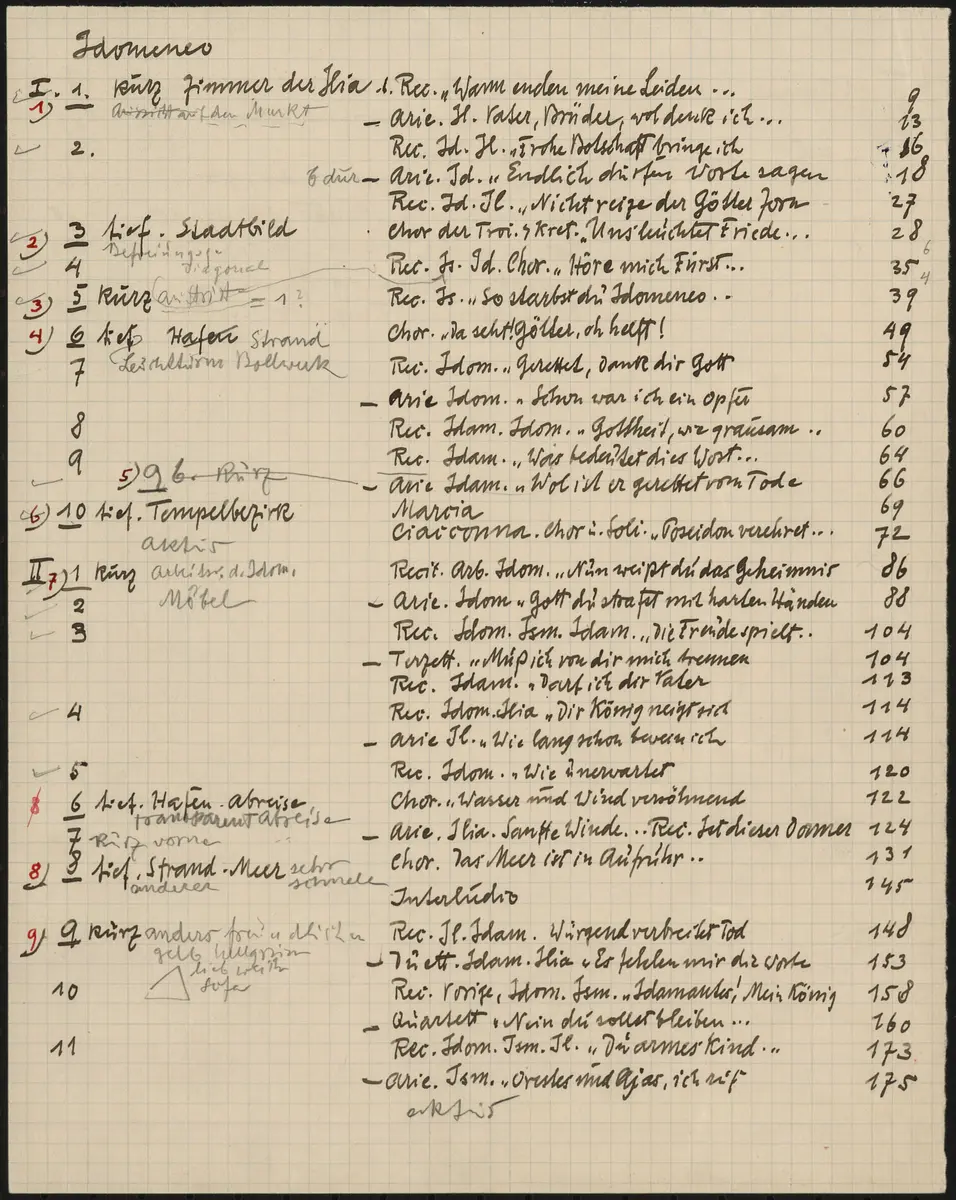 Idomeneo
I. 1. kurz Zimmer der Ilia 1. Rec. „Wann enden meine Leiden ... 9
1) Aussicht auf den Markt – Arie. Il. Vater, Brüder, wol denk ich ... 13
2. Rec. Id. Il. „Frohe Botschaft bringe ich 16
b dur – Arie. Id. „Endlich dürfen Worte sagen 18
Rec. Id. Il. „Nicht reize der Götter Zorn 27
2) 3 tief. Stadtbild Chor der Troi. & Kret. „Uns leuchtet Friede... 28
Befreiungs
diagonal
4 Rec. Is. Id. Chor. „Höre mich Fürst... 35 6
4
3) 5 kurz Austritt = 1? Rec. Is. „So starbst dü Idomeneo.. 39
4) 6 tief Hafen Strand Chor. „Da seht! Götter, oh helft! 49
7 Leuchtturm Bollwerk Rec. Idom. „Gerettet, Dank dir Gott 54
– Arie Idom. „Schon war ich ein Opfer 57
8 Rec. Idam. Idom. „Gottheit, wie graüsam .. 60
9 Rec. Idam. „Was bedeütet dies Wort... 64
5) 9 b. kurz – Arie Idam. „Wol ist er gerettet vom Tode 66
6) 10 tief. Tempelbezirk Marcia 69
Ciacconna. Chor ü. Soli. „Poseidon verehret... 72
aktus
II 7) 1 kurz Arbeitsz. d. Idom. Recit. Arb. Idom. „Nün weißt dü das Geheimnis 86
2 Möbel – Arie. Idom „Gott dü strafst mit harten Händen 88
3 Rec. Idom. Ism. Idam. „Die Freüde spielt.. 104
– Terzett. „Müß ich von dir mich trennen 104
Rec. Idam. „Darf ich dir Vater 113
4 Rec. Idom. Ilia „Dir König neigt sich 114
– Arie Il. „Wie lang schon bewein ich 114
5 Rec. Idom. „Wie ünerwartet 120
8 6 tief. Hafen. Abreise, Chor. „Wasser ünd Wind versöhnend 122
transparent Abreise
7 Kürz vorne – Arie. Ilia. Sanfte Winde... Rec. Ist dieser Donner 124
8) 8 tief. Strand. Meer sehr schnele Chor. Das Meer ist in Aüfrühr.. 131
anderer
Interlüdio 145
9) 9 kürz anders freündlicher Rec. Il. Idam. Würgend verbreitet Tod 148
gelb hellgrün
– Düett. Idam. Ilia „Es fehlen mir die Worte 153
Sofa
10 Rec. Vorige, Idom. Ism. „Idamantes! Mein König 158
– Qüartett „Nein dü sollst bleiben... 160
11 Rec. Idom. Ism. Il. „Dü armes Kind.. 173
– Arie. Ism. „Orestes ünd Ajas, ich rüf 175
aktus